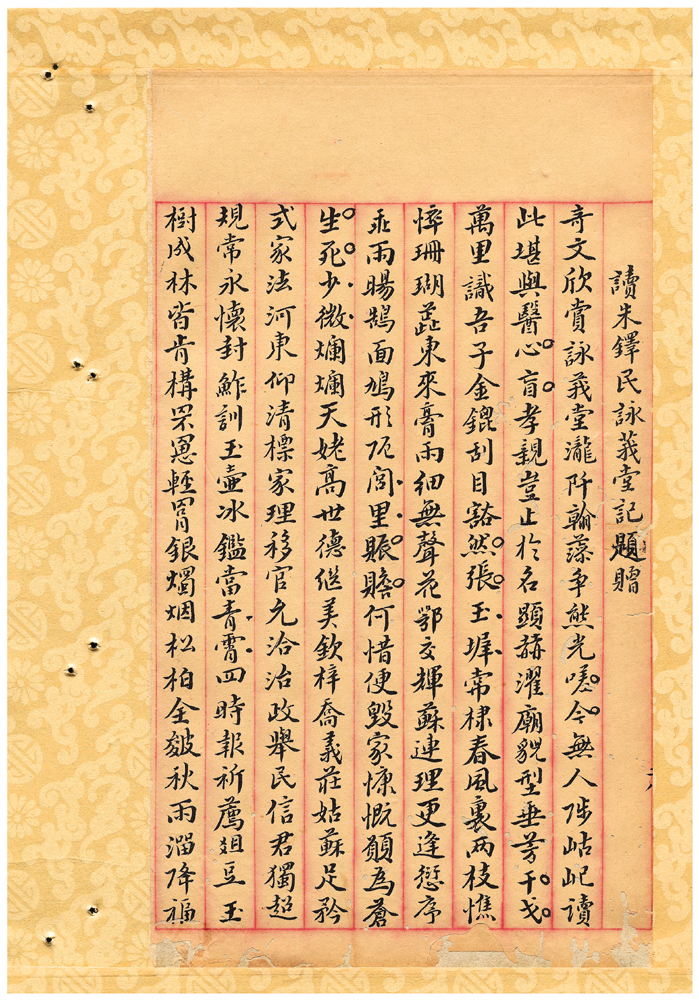 讀朱鐸民詠莪堂記題贈
奇文欣賞詠莪堂瀧阡翰藻爭熊光嗟今無人陟岵屺讀
此堪與醫心盲孝親豈止於名顯赫濯廟貌型垂芳干戈
萬里識吾子金鎞刮目豁然張玉墀常棣春風裏兩枝憔
悴珊瑚蕋東來膏雨細無聲花鄂交輝蘇連理更逢愆序
乖雨暘鵠面鳩形阨閭里賑贍何惜便毀家慷慨願為蒼
生死少微爛爛天姥高世德继美欽梓喬義莊姑蘇足矜
式家法河東仰清標家理移官允洽治政舉民信君獨超
規常永懷封鮓訓玉壷冰鑑當青霄四時報祈薦俎豆玉
樹成林皆肯構罘罳輕罥銀燭烟松柏全皴秋雨溜降福